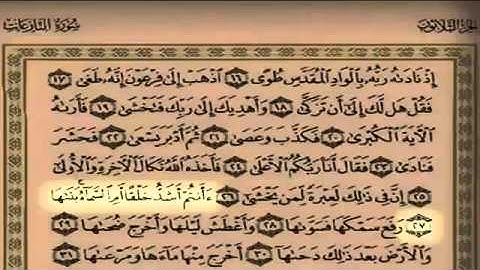 الجزء الثلاثون
سورة النازعات
إِذْ نَادَىٰهُ رَبُّهُۥ بِٱلْوَادِ ٱلْمُقَدَّسِ طُوًى ١٦ ٱذْهَبْ إِلَىٰ فِرْعَوْنَ إِنَّهُۥ طَغَىٰ ١٧
فَقُلْ هَل لَّكَ إِلَىٰٓ أَن تَزَكَّىٰ ١٨ وَأَهْدِيَكَ إِلَىٰ رَبِّكَ فَتَخْشَىٰ ١٩ فَأَرَىٰهُ
ٱلْءَايَةَ ٱلْكُبْرَىٰ ٢٠ فَكَذَّبَ وَعَصَىٰ ٢١ ثُمَّ أَدْبَرَ يَسْعَىٰ ٢٢ فَحَشَرَ
فَنَادَىٰ ٢٣ فَقَالَ أَنَا۠ رَبُّكُمُ ٱلْأَعْلَىٰ ٢٤ فَأَخَذَهُ ٱللَّهُ نَكَالَ ٱلْءَاخِرَةِ وَٱلْأُولَىٰٓ
٢٥ إِنَّ فِى ذَٰلِكَ لَعِبْرَةً لِّمَن يَخْشَىٰٓ ٢٦ ءَأَنتُمْ أَشَدُّ خَلْقًا أَمِ ٱلسَّمَآءُ بَنَىٰهَا
٢٧ رَفَعَ سَمْكَهَا فَسَوَّىٰهَا ٢٨ وَأَغْطَشَ لَيْلَهَا وَأَخْرَجَ ضُحَىٰهَا ٢٩
وَٱلْأَرْضَ بَعْدَ ذَٰلِكَ دَحَىٰهَآ ٣٠ أَخْرَجَ مِنْهَا مَآءَهَا وَمَرْعَىٰهَا ٣١